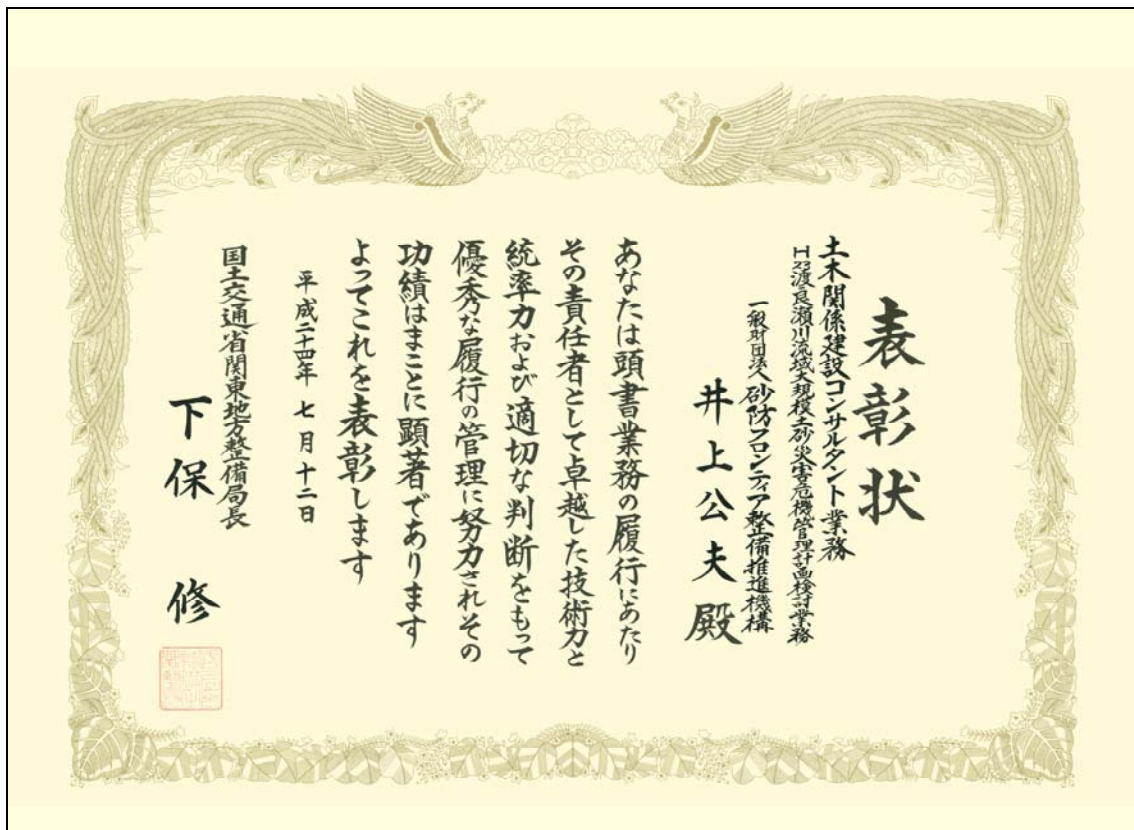 表彰状
土木関係建設コンサルタント業務
H23渡良瀬川流域大規模土砂災害危機管理計画検討業務
一般財団法人 砂防フロンティア整備推進機構
井上公夫 殿
あなたは頭書業務の履行にあたり
その責任者として卓越した技術力と
統率力および適切な判断をもって
優秀な履行の管理に努力されその
功績はまことに顕著であります
よってこれを表彰します
平成二十四年 七月十二日
国土交通省関東地方整備局長
下保 修